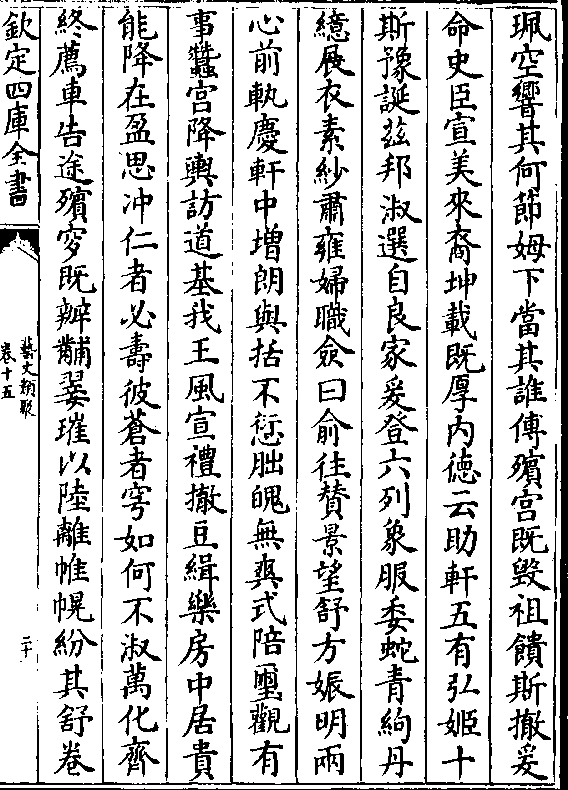 珮空響其何節姆下當其誰傅殯宫既毁祖饋斯撤爰
命史臣宣美來裔坤載既厚内徳云助軒五有弘姬十
斯豫誕兹邦淑選自良家爰登六列象服委蛇青絇丹
繶展衣素紗肅雍婦職僉曰俞往賛景望舒方娠明兩
心前執慶軒中増朗與括不愆朏魄無爽式陪璽觀有
事蠶宫降輿訪道基我王風宣禮撤豆緝樂房中居貴
能降在盈思冲仁者必壽彼蒼者穹如何不淑萬化齊
終薦車告途殯穸既辦黼翣璀以陸離帷幌紛其舒卷
欽定四庫全書
藝文類聚
卷十五
二十